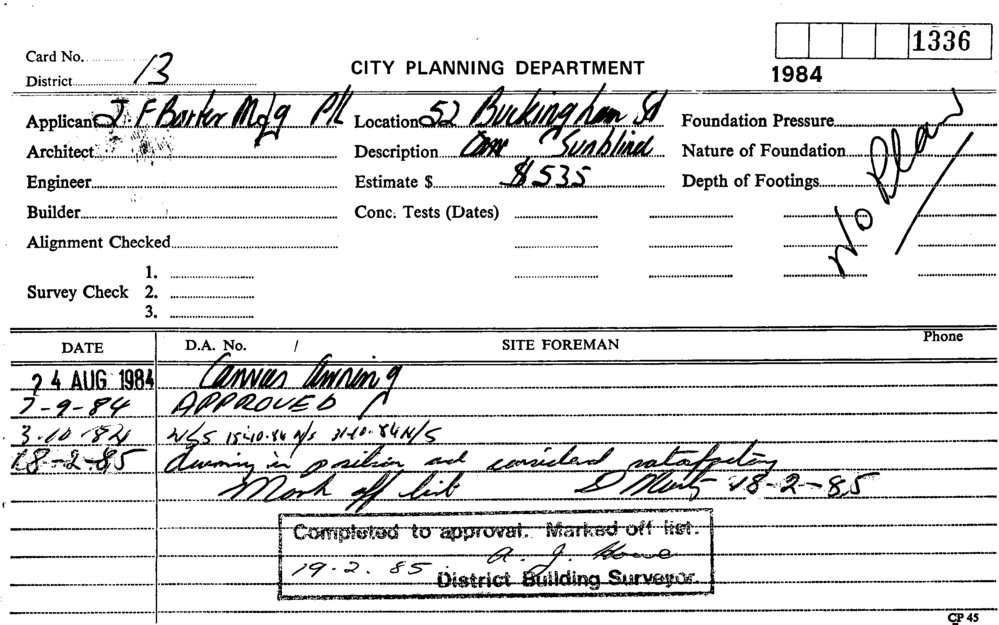 1336
Card No.
1984
District 13
CITY PLANNING DEPARTMENT
Applicant J F Barter Mfg P/L Location 52 Buckingham St Foundation Pressure
Architect Description Sunblind Nature of Foundation
Engineer Estimate $ $535 Depth of Footings
Builder Conc. Tests (Dates)
N/O Plan
Alignment Checked
1.
Survey Check 2.
3.
DATE D.A. No. / SITE FOREMAN Phone
24 AUG 1984 Canvas Awning
7-9-84 APPROVED
3.10.84 N/S 15-10-84 N/S 31-10-84 N/S
18-2-85 Awning in position and considered satisfactory
Mark off list 18-2-85
Completed to approval. Marked off list.
A. J. Howe
19.2.85 District Building Surveyor.
CP 45